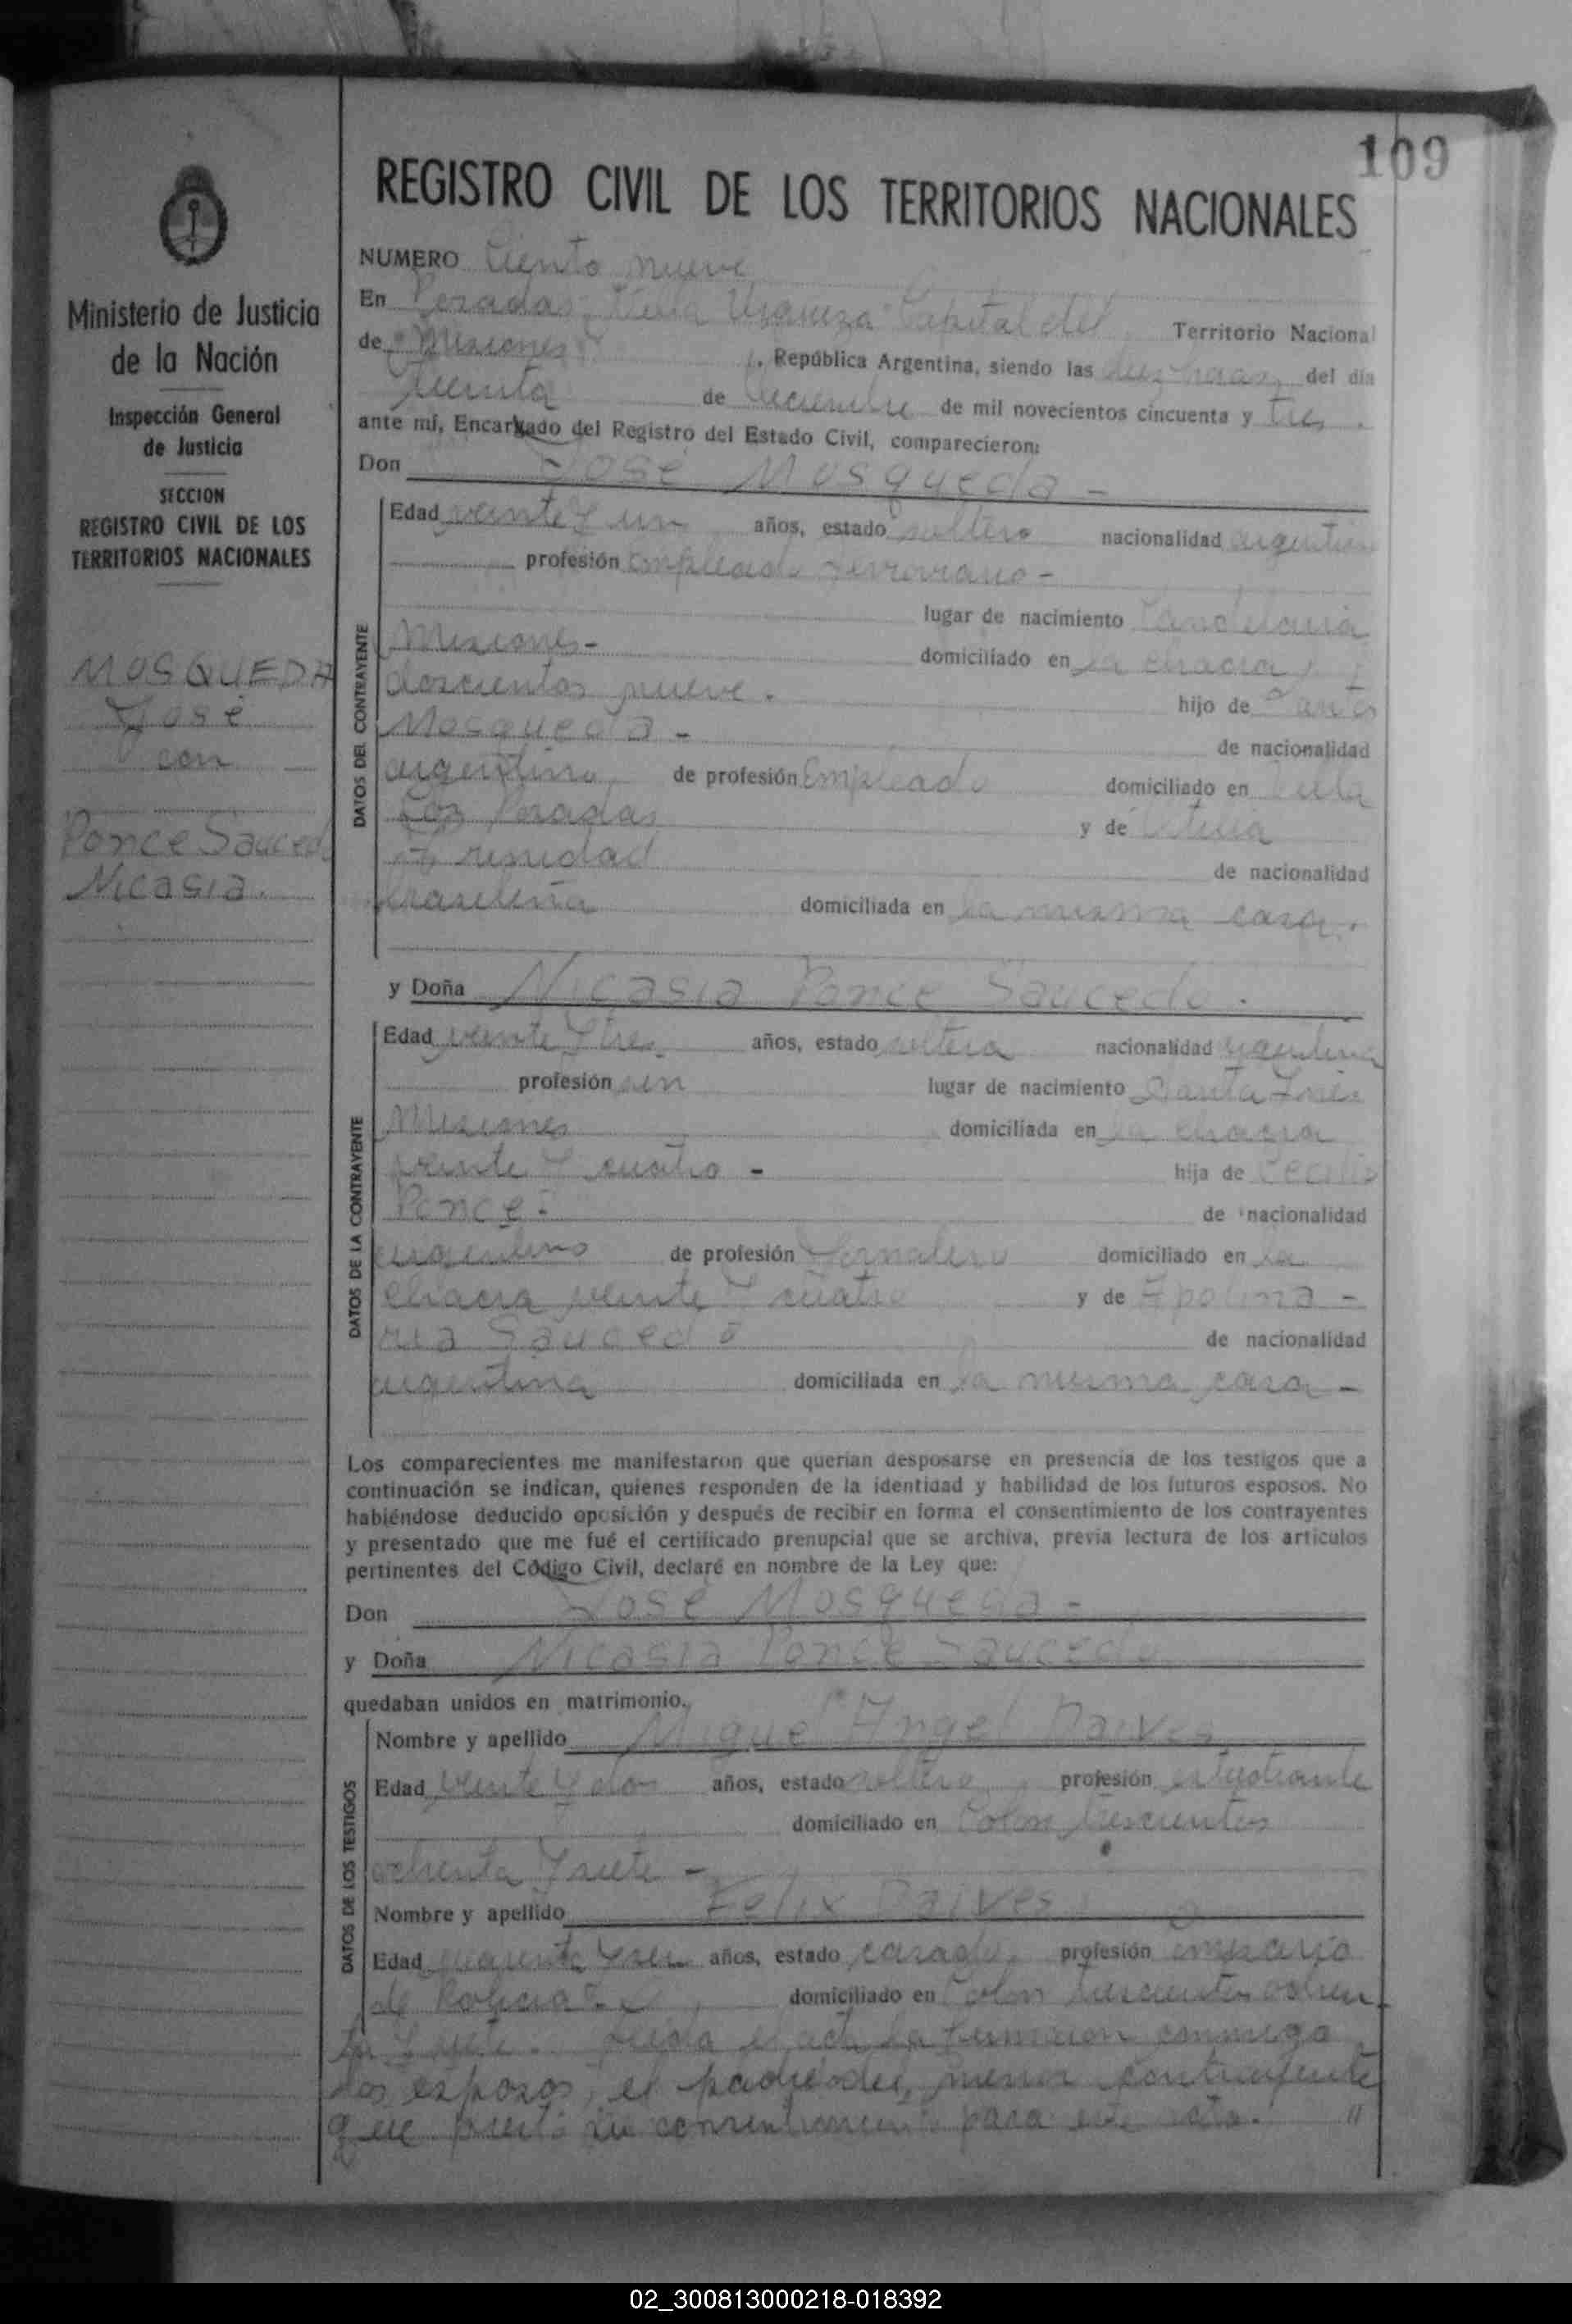 109
REGISTRO CIVIL DE LOS TERRITORIOS NACIONALES
Ministerio de Justicia
de la Nación
Inspección General
de Justicia
SECCION
REGISTRO CIVIL DE LOS
TERRITORIOS NACIONALES
MOSQUEDA
José
con
Ponce Saucedo
Nicasia.
NUMERO Ciento nueve
En Posadas, Villa Urquiza Capital del Territorio Nacional
de Misiones República Argentina, siendo las diez horas, del día
treinta de Diciembre de mil novecientos cincuenta y tres.
ante mí, Encargado del Registro del Estado Civil, comparecieron:
Don José Mosqueda -
DATOS DEL CONTRAYENTE
Edad veinte y un años, estado soltero nacionalidad argentino
profesión empleado ferroviario -
lugar de nacimiento Candelaria
Misiones - domiciliado en la chacra
doscientos nueve. hijo de
Mosqueda - de nacionalidad
argentino de profesión Empleado domiciliado en
Posadas y de
Trinidad de nacionalidad
brasileña domiciliada en la misma casa.
y Doña Nicasia Ponce Saucedo.
DATOS DE LA CONTRAYENTE
Edad veinte y tres años, estado soltera nacionalidad argentina
profesión sin lugar de nacimiento Santa Inés
Misiones domiciliada en la chacra
veinte y cuatro - hija de Cecilio
Ponce - de nacionalidad
argentino de profesión Jornalero domiciliado en la
chacra veinte y cuatro y de Apolina -
ria Saucedo de nacionalidad
argentina domiciliada en la misma casa -
Los comparecientes me manifestaron que querían desposarse en presencia de los testigos que a
continuación se indican, quienes responden de la identidad y habilidad de los futuros esposos. No
habiéndose deducido oposición y después de recibir en forma el consentimiento de los contrayentes
y presentado que me fué el certificado prenupcial que se archiva, previa lectura de los artículos
pertinentes del Código Civil, declaré en nombre de la Ley que:
Don José Mosqueda -
y Doña Nicasia Ponce Saucedo
quedaban unidos en matrimonio.
DATOS DE LOS TESTIGOS
Nombre y apellido Miguel Angel
Edad veinte y dos años, estado soltero profesión estudiante
domiciliado en Colon trescientos
ochenta y siete -
Nombre y apellido Felix
Edad años, estado casado, profesión
de Policia domiciliado en Colon trescientos ochen
ta y siete. Leida el acta la firmaron conmigo
los esposos, el padre del menor contrayente
que prestó su consentimiento para este acto. "
02_300813000218-018392